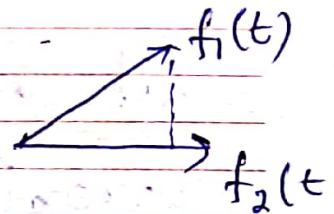 f₁(t)
f₂(t